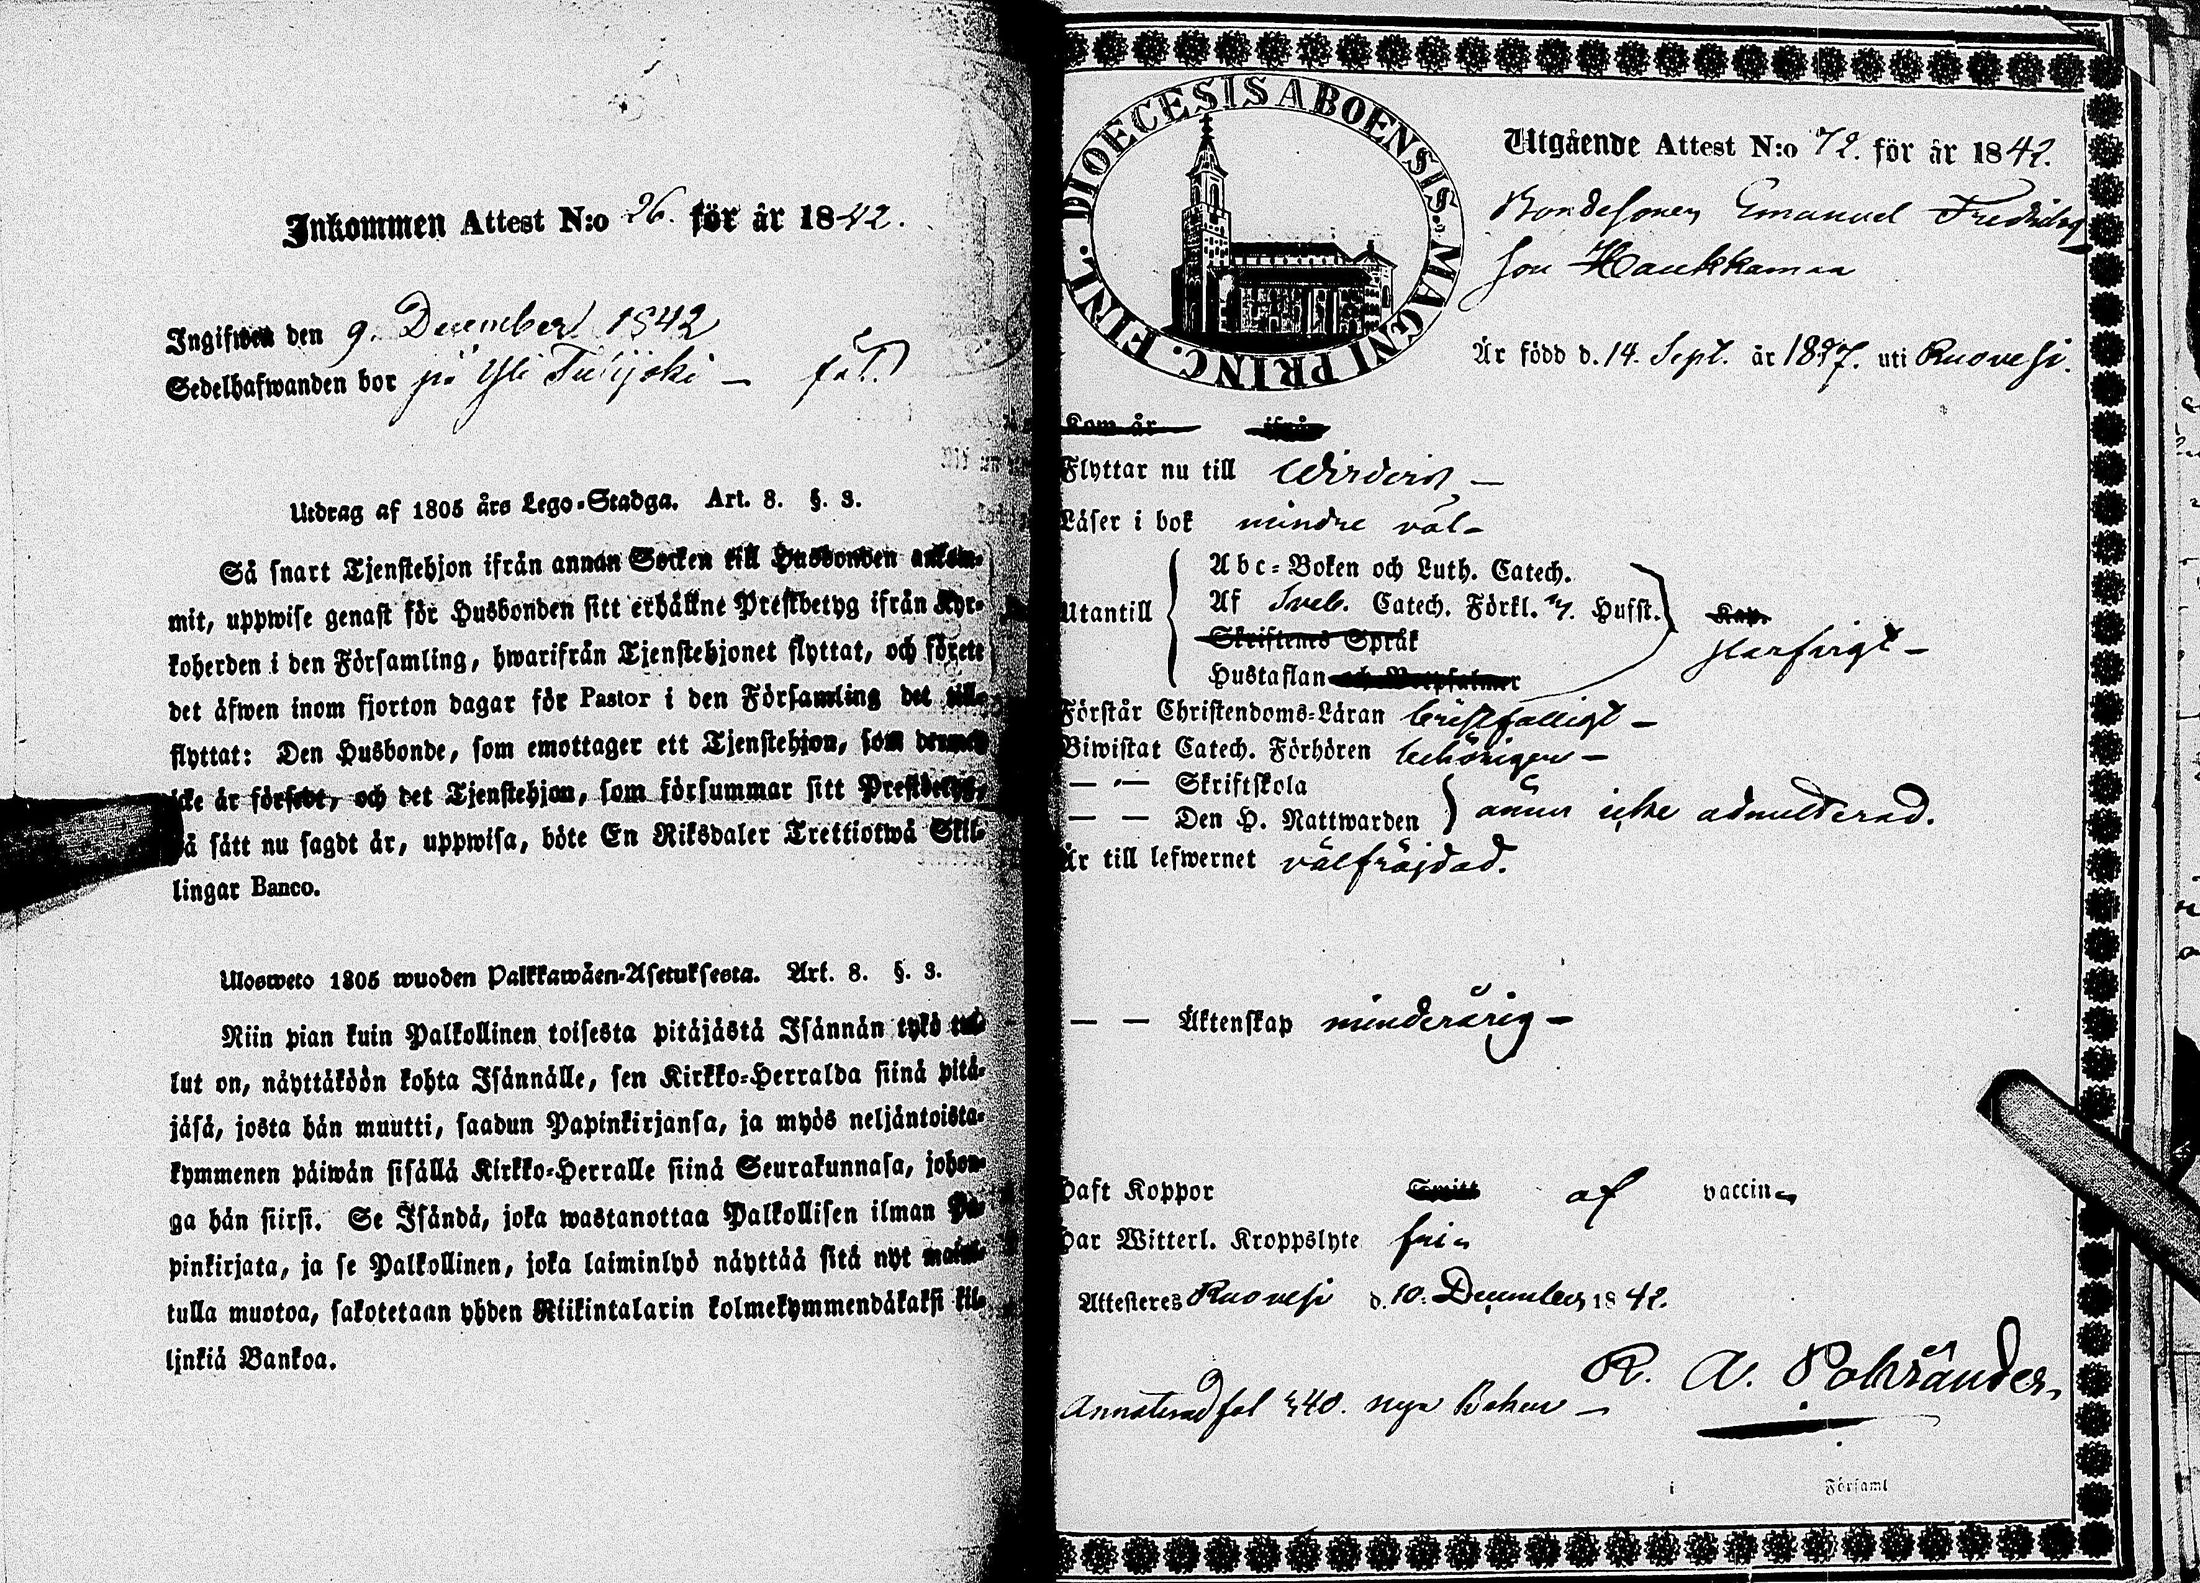 Inkommen Attest N:o 26. för år 1842.
Ingifwen den 9. December 1842
Sedelhafwanden bor på Yli
Utdrag af 1805 års Lego-Stadga. Art. 8. §. 3.
Så snart Tjenstehjon ifrån annan Socken till Husbonden ankom-
mit, uppwise genast för Husbonden sitt erhållne Prestbetyg ifrån Kyr-
koherden i den Församling, hwarifrån Tjenstehjonet flyttat, och förete
det äfwen inom fjorton dagar för Pastor i den Församling det till-
flyttat: Den Husbonde, som emottager ett Tjenstehjon, som dermed
icke är försedt, och det Tjenstehjon, som försummar sitt Prestbetyg,
på sätt nu sagdt är, uppwisa, böte En Riksdaler Trettiotwå Skil-
lingar Banco.
Ulosweto 1805 wuoden Palkkawäen-Asetuksesta. Art. 8. §. 3.
Niin pian kuin Palkollinen toisesta pitäjästä Isännän tykö tul-
lut on, näyttäköön kohta Isännälle, sen Kirkko-Herralda siinä pitä-
jäsä, josta hän muutti, saadun Papinkirjansa, ja myös neljäntoista-
kymmenen päiwän sisällä Kirkko-Herralle siinä Seurakunnasa, johon-
ga hän siirsi. Se Isändä, joka wastanottaa Palkollisen ilman Pa-
pinkirjata, ja se Palkollinen, joka laiminlyö näyttää sitä nyt mainit-
tulla muotoa, sakotetaan yhden Riikintalarin kolmekymmendäkaksi kil-
linkiä Bankoa.
DIOECESIS ABOENSIS. MAGNI PRINC. FINL.
Utgående Attest N:o 72. för år 1842.
Bondesonen Emanuel Fredriks
son Haukkamaa
Är född d. 14. Sept. år 1827. uti Ruovesi.
Kom år ifrån
Flyttar nu till Wirdois
Läser i bok mindre väl
Utantill
Abc-Boken och Luth. Catech.
Af Sveb. Catech. Förkl. Husst.
Skriftenes Språk
Hustaflan och Botpsalmer
Kap.
Förstår Christendoms-Läran bristfälligt
Biwistat Catech. Förhören behörigen
— — Skriftskola
— — Den H. Nattwarden
ännu icke admitterad.
Är till lefwernet välfräjdad.
— — Äktenskap minderårig
Haft Koppor af vaccin
Har Witterl. Kroppslyte fri
Attesteres Ruovesi d. 10. December 1842.
R. A. Pohränder
Annoterad fol 340. nya Boken
i Församl